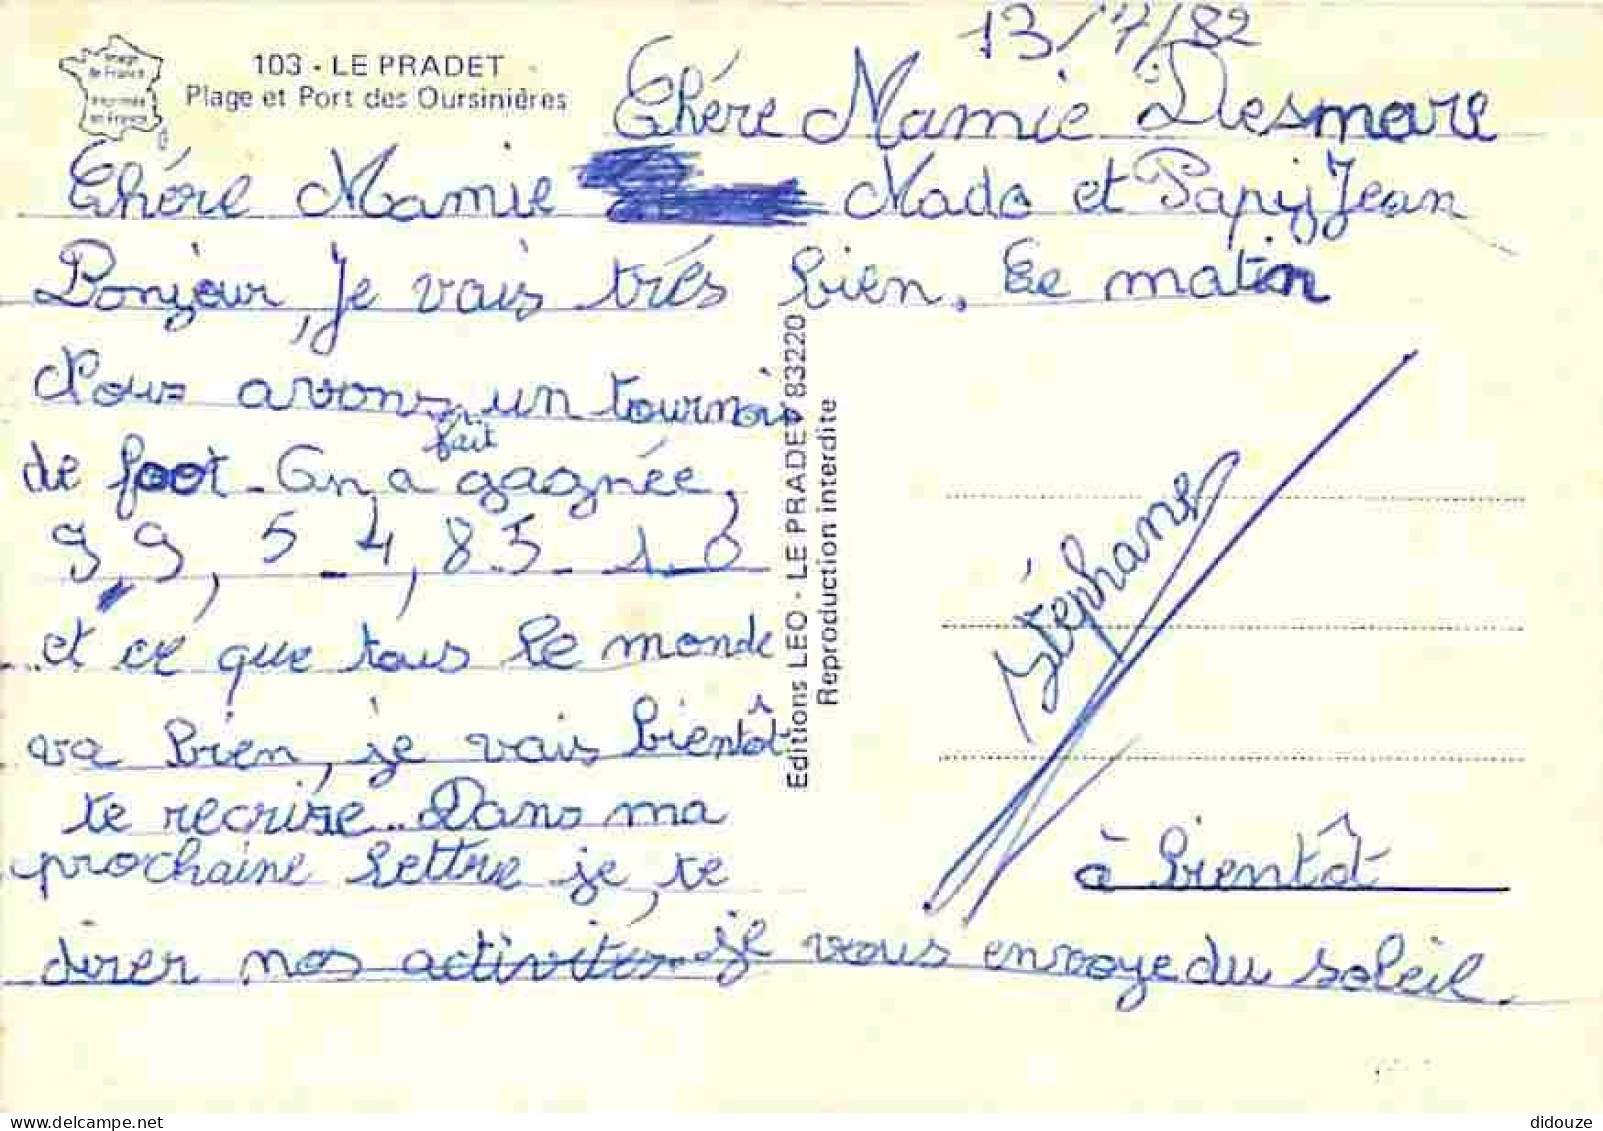 13/7/82
103 - LE PRADET
Plage et Port des Oursinières
Image
de France
imprimée
en France
Chére Mamie Desmare
Chére Mamie Mado et Papy Jean
Bonjour, Je vais trés bien. Ce matin
Nous avons un tournois
fait
de foot. On a gagnée,
9_9, 5_4, 8_5_1_0
et ce que tous le monde
va bien, je vais bientôt
te recrire.. Dans ma
prochaine lettre je, te
direr nos activités.. je vous envoye du soleil.
Stéphane
à bientôt
Editions LEO - LE PRADET 83220
Reproduction interdite
didouze